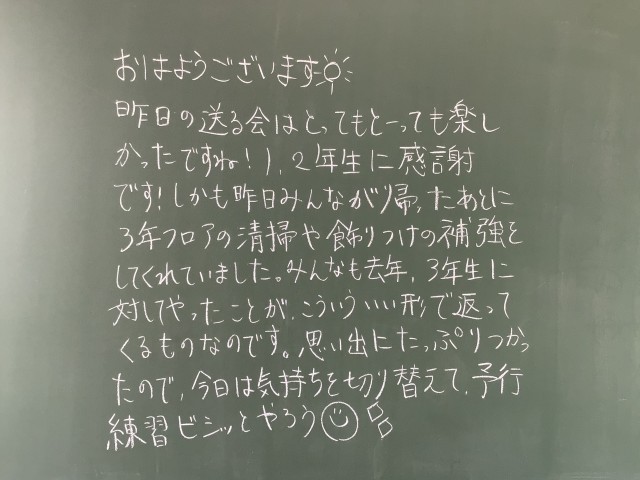 おはようございます
昨日の送る会はとってもとーっても楽し
かったですね！1、2年生に感謝
です！しかも昨日みんなが帰ったあとに
3年フロアの清掃や飾りつけの補強を
してくれていました。みんなも去年、3年生に
対してやったことが、こういういい形で返って
くるものなのです。思い出にたっぷりつかっ
たので、今日は気持ちを切り替えて、予行
練習ビシッとやろう